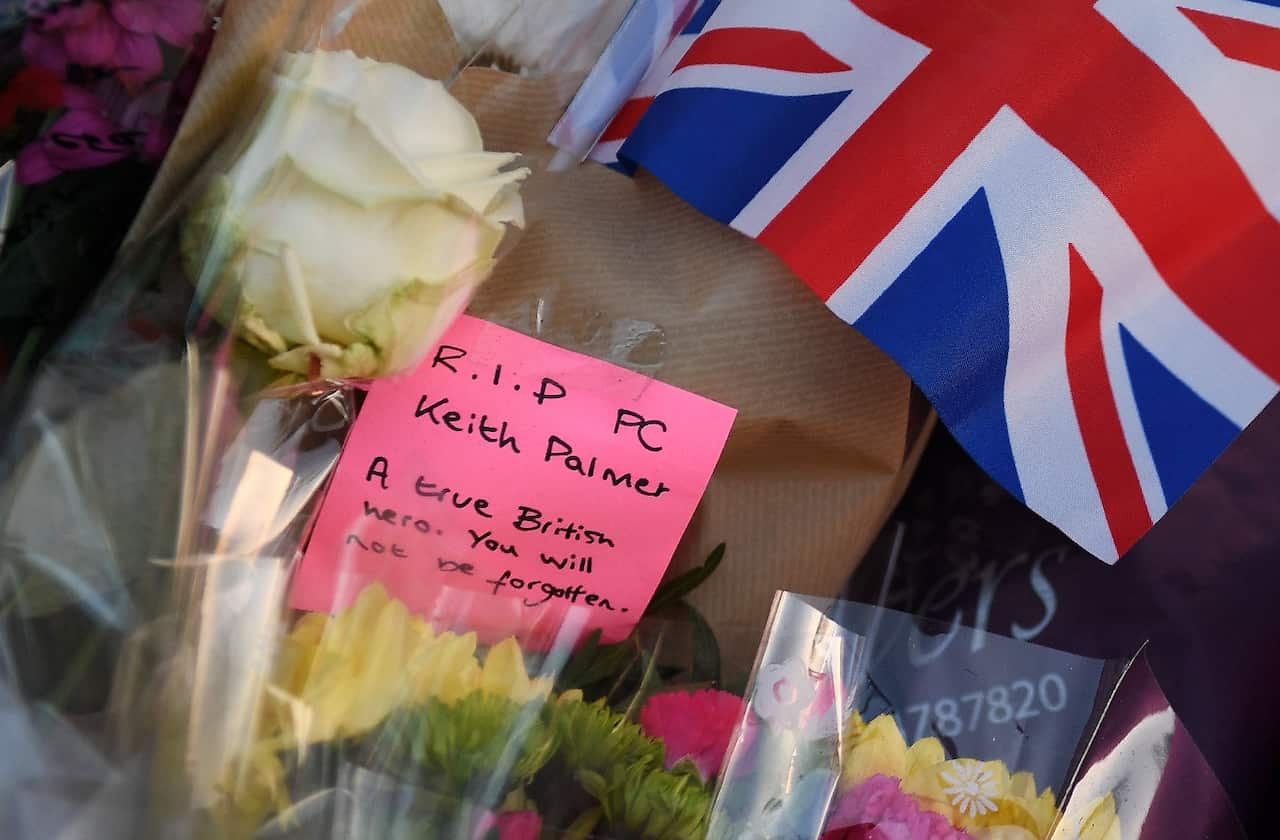 R.I.P PC
Keith Palmer
A true British
hero. You will
not be forgotten.
787820